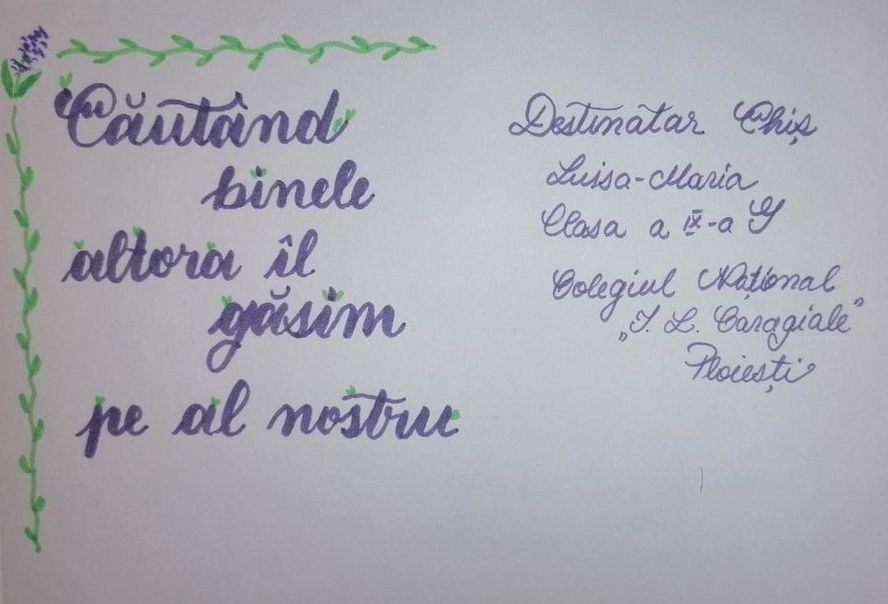 Căutând
binele
altora îl
găsim
pe al nostru
Destinatar Chiș
Luisa-Maria
Clasa a IX-a G
Colegiul Național
„I. L. Caragiale”
Ploiești